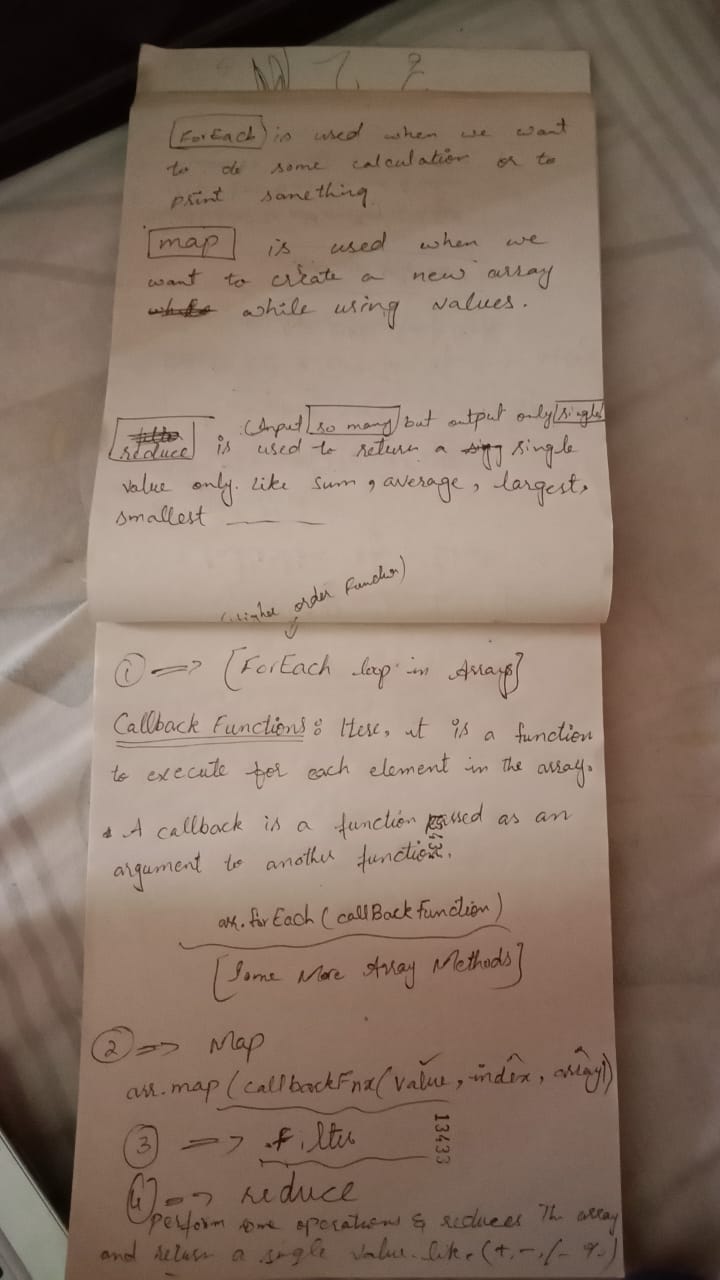 ForEach is used when we want
to do some calculation or to
print something
map is used when we
want to create a new array
while using values.
(Input so many but output only single
reduce is used to return a single
value only. Like sum, average, largest,
smallest
(Higher order Function)
① => [ForEach loop in Arrays]
Callback Functions: Here, it is a function
to execute for each element in the array.
A callback is a function passed as an
argument to another function.
arr.forEach(callBackFunction)
[Some More Array Methods]
② => Map
arr.map(callbackFnx(value, index, array))
13433
③ => .filter
④ => reduce
Perform some operations & reduces the array
and return a single value. like (+, -, /